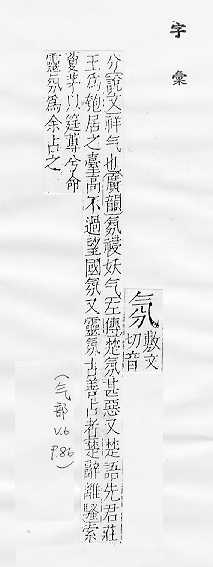 字彙
氛
敷文
切音
分說文祥气也廣韻氛祲妖气左傳楚氛甚惡又楚語先君莊
王為匏居之臺高不過望國氛又靈氛古善占者楚辭離騷索
藑茅以筳篿兮命
靈氛為余占之
(气部 V.6 P.86)